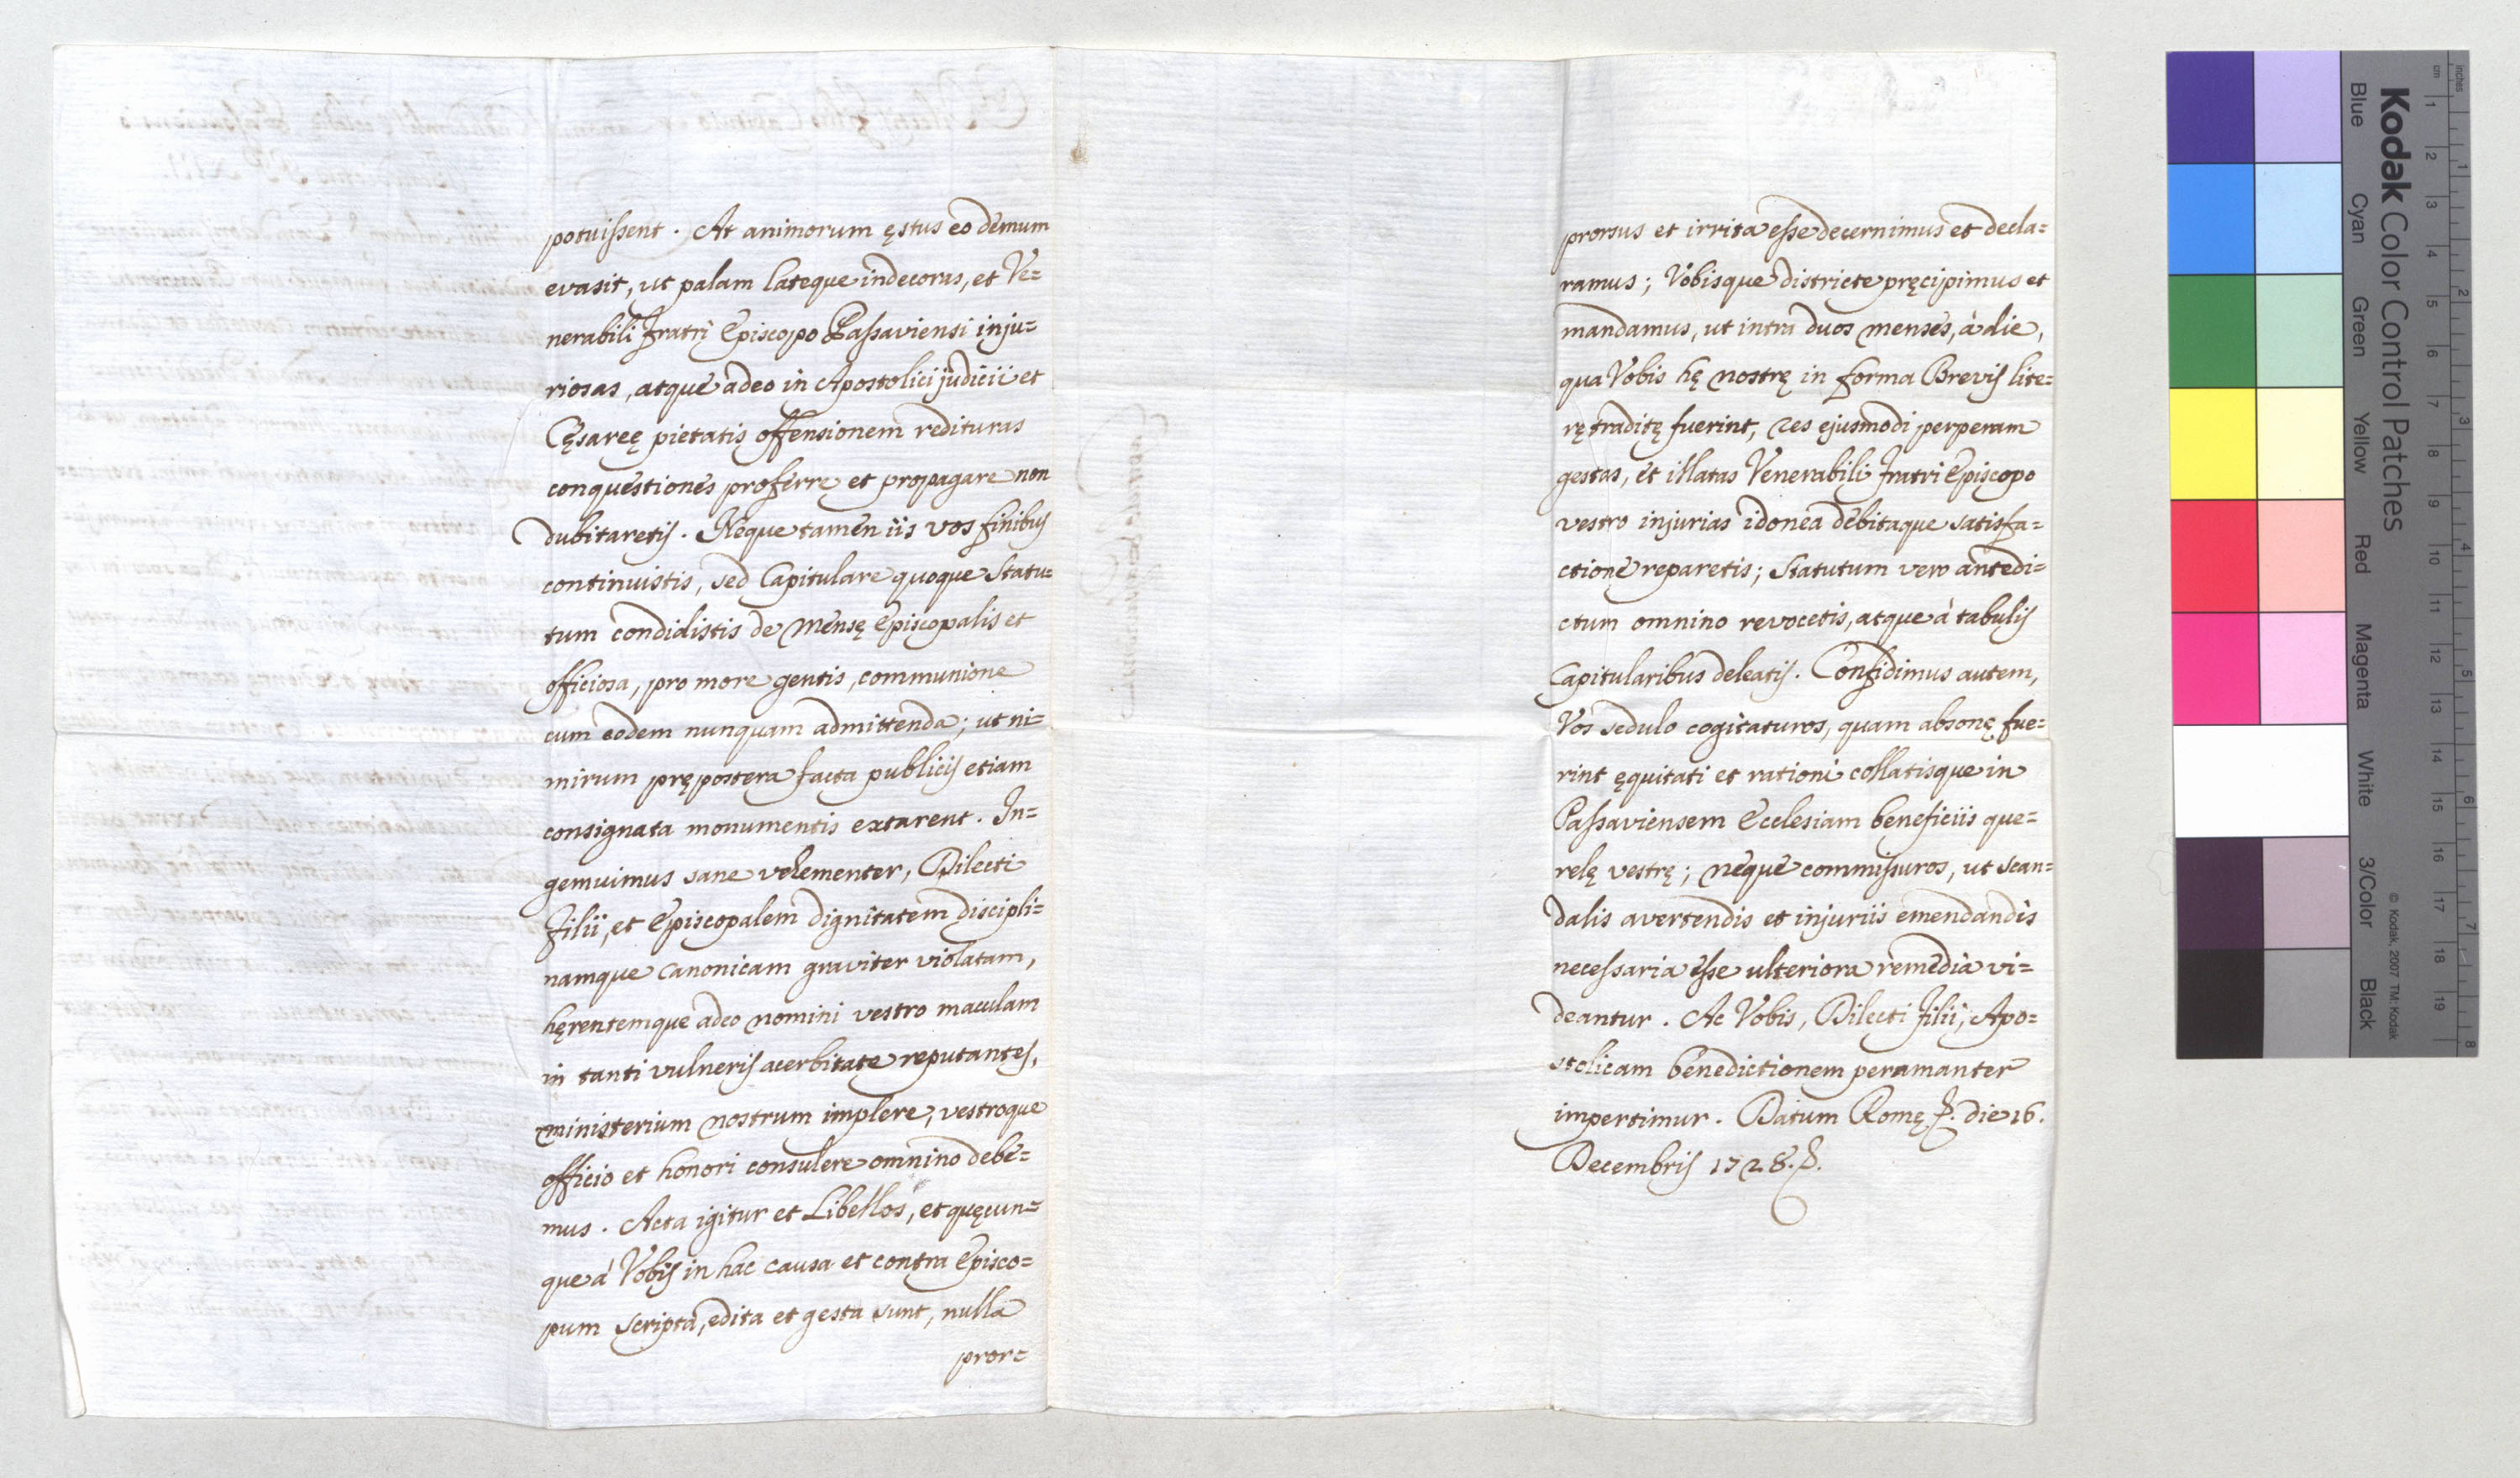 potuissent. At animorum ęstus eo demum
evasit, ut palam lateque indecoras, et Ve=
nerabili Fratri Episcopo Passaviensi inju=
riosas, atque adeo in Apostolici judicii et
Cęsareę pietatis offensionem redituras
conquestiones proferre et propagare non
dubitaretis. Neque tamen iis vos finibus
continuistis, sed Capitulare quoque Statu=
tum condidistis de Mensę Episcopalis et
officiosa, pro more gentis, communione
cum eodem nunquam admittenda; ut ni=
mirum prępostera facta publicis etiam
consignata monumentis extarent. In=
gemuimus sane vehementer, Dilecti
Filii, et Episcopalem dignitatem discipli=
namque canonicam graviter violatam,
hęrentemque adeo nomini vestro maculam
in tanti vulneris acerbitate reputantes,
ministerium nostrum implere, vestroque
officio et honori consulere omnino debe=
mus. Acta igitur et Libellos, et quęcun=
que à Vobis in hac causa et contra Episco=
pum scripta, edita et gesta sunt, nulla
pror=
prorsus et irrita esse decernimus et decla=
ramus; Vobisque districte pręcipimus et
mandamus, ut intra duos menses, à die,
qua Vobis hę nostrę in forma Brevis lite=
rę traditę fuerint, res ejusmodi perperam
gestas, et illatas Venerabili Fratri Episcopo
vestro injurias idonea debitaque satisfa=
ctione reparetis; Statutum vero antedi=
ctum omnino revocetis, atque à tabulis
Capitularibus deleatis. Confidimus autem,
Vos sedulo cogitaturos, quam absonę fue=
rint ęquitati et rationi collatisque in
Passaviensem Ecclesiam beneficiis que=
relę vestrę; neque commissuros, ut scan=
dalis avertendis et injuriis emendandis
necessaria esse ulteriora remedia vi=
deantur. Ac Vobis, Dilecti Filii, Apo=
stolicam benedictionem peramanter
impertimur. Datum Romę die 16.
Decembris 1728.
Kodak Color Control Patches
Blue Cyan Green Yellow Red Magenta White 3/Color Black
© Kodak, 2007 TM: Kodak
inches 1 2 3 4 5 6 7 8
cm 1 2 3 4 5 6 7 8 9 10 11 12 13 14 15 16 17 18 19